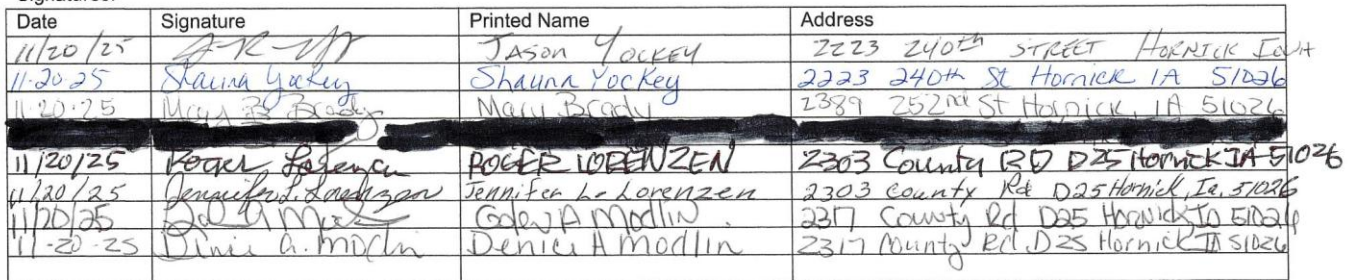 Date Signature Printed Name Address
11/20/25 JASON YOCKEY 2223 240th STREET HORNICK IOWA
11-20-25 Shauna Yockey Shauna Yockey 2223 240th St Hornick IA 51026
11-20-25 Mary B Brady Mary Brady 2389 252nd St Hornick, IA 51026
11/20/25 Roger Lorenzen ROGER LORENZEN 2303 County RD D25 Hornick IA 51026
11/20/25 Jennifer L. Lorenzen Jennifer L. Lorenzen 2303 County Rd D25 Hornick, Ia. 51026
11/20/25 A Modlin 2317 County Rd D25 Hornick Ia 51026
11-20-25 Denice A. Modlin Denice A Modlin 2317 County Rd. D25 Hornick IA 51026